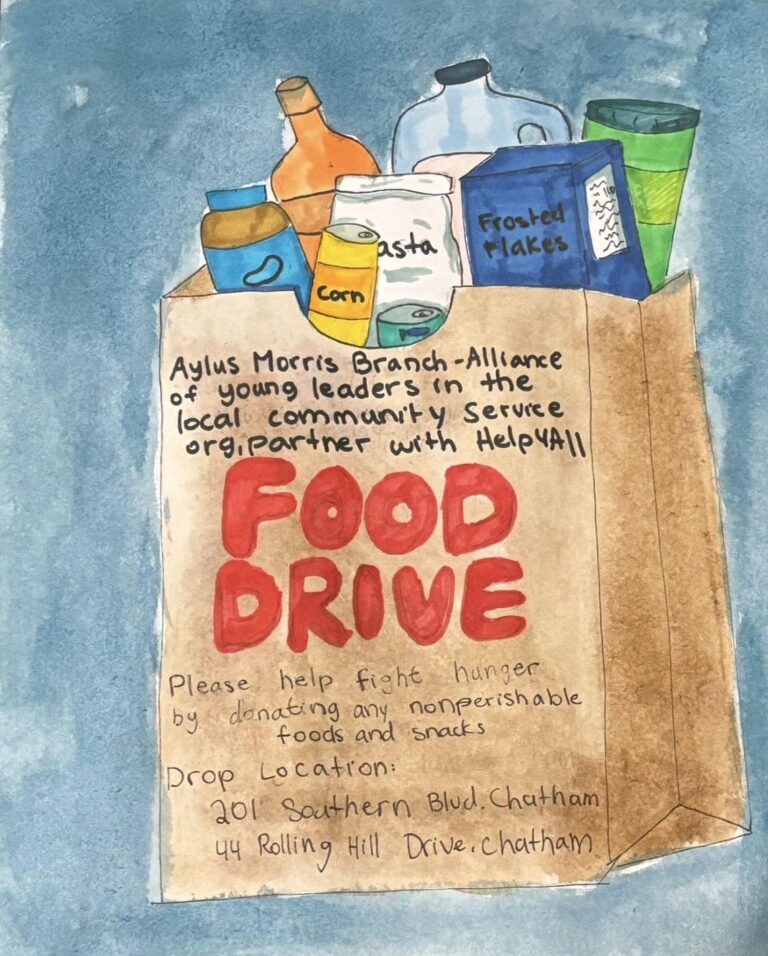 Frosted
Flakes
asta
Corn
Aylus Morris Branch-Alliance
of young leaders in the
local community service
org, partner with Help4All
FOOD
DRIVE
Please help fight hunger
by donating any nonperishable
foods and snacks
Drop Location:
201 Southern Blvd. Chatham
44 Rolling Hill Drive, Chatham